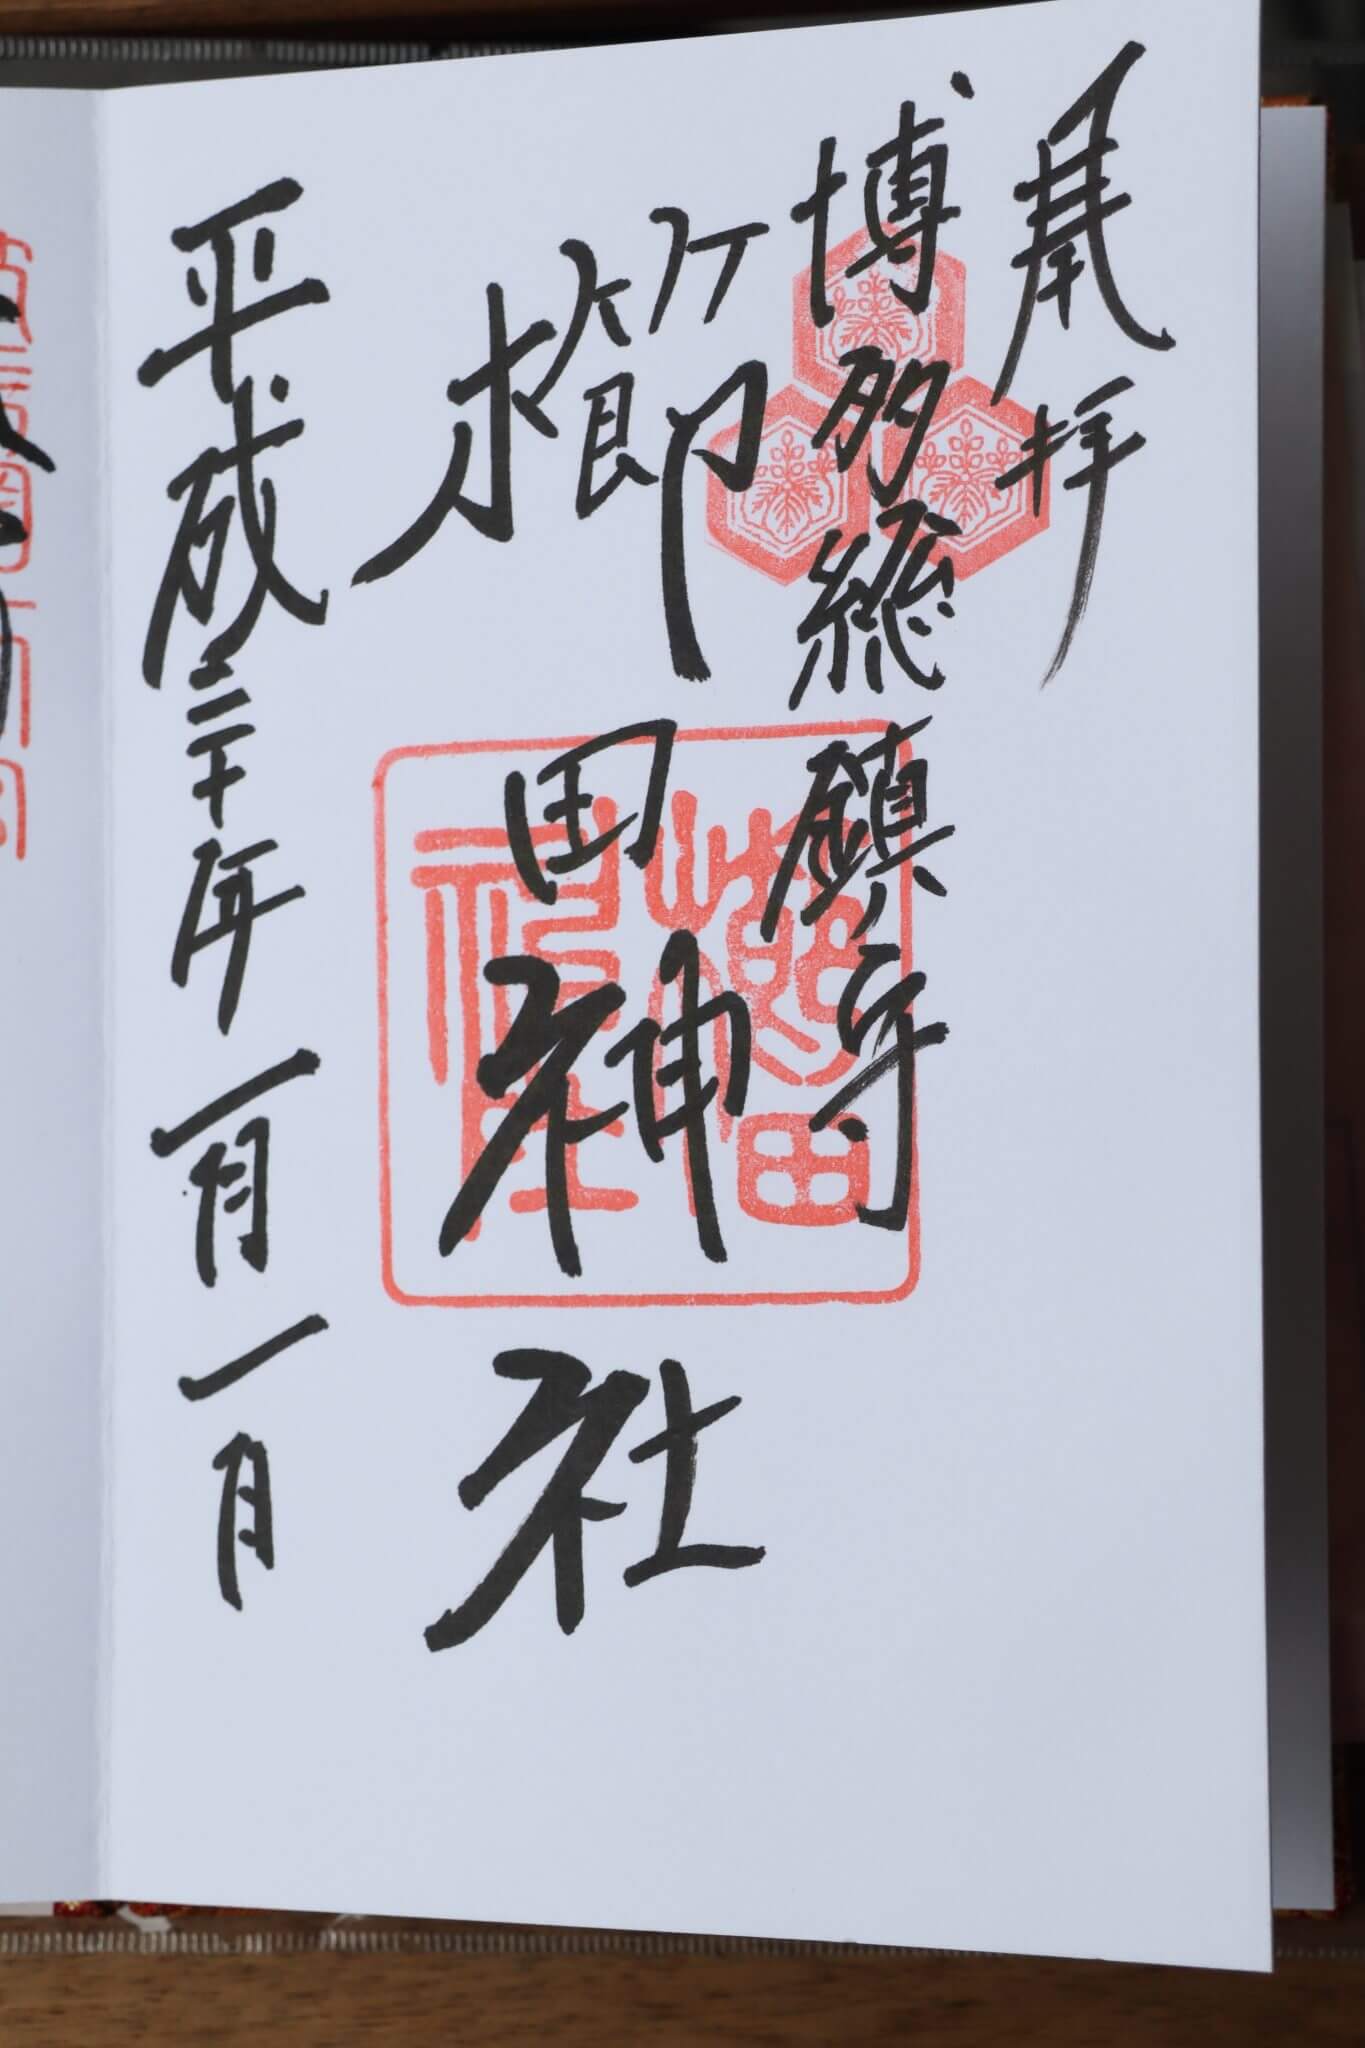 奉拝
博多総鎮守
櫛田神社
平成三十年一月一日
櫛田
神社